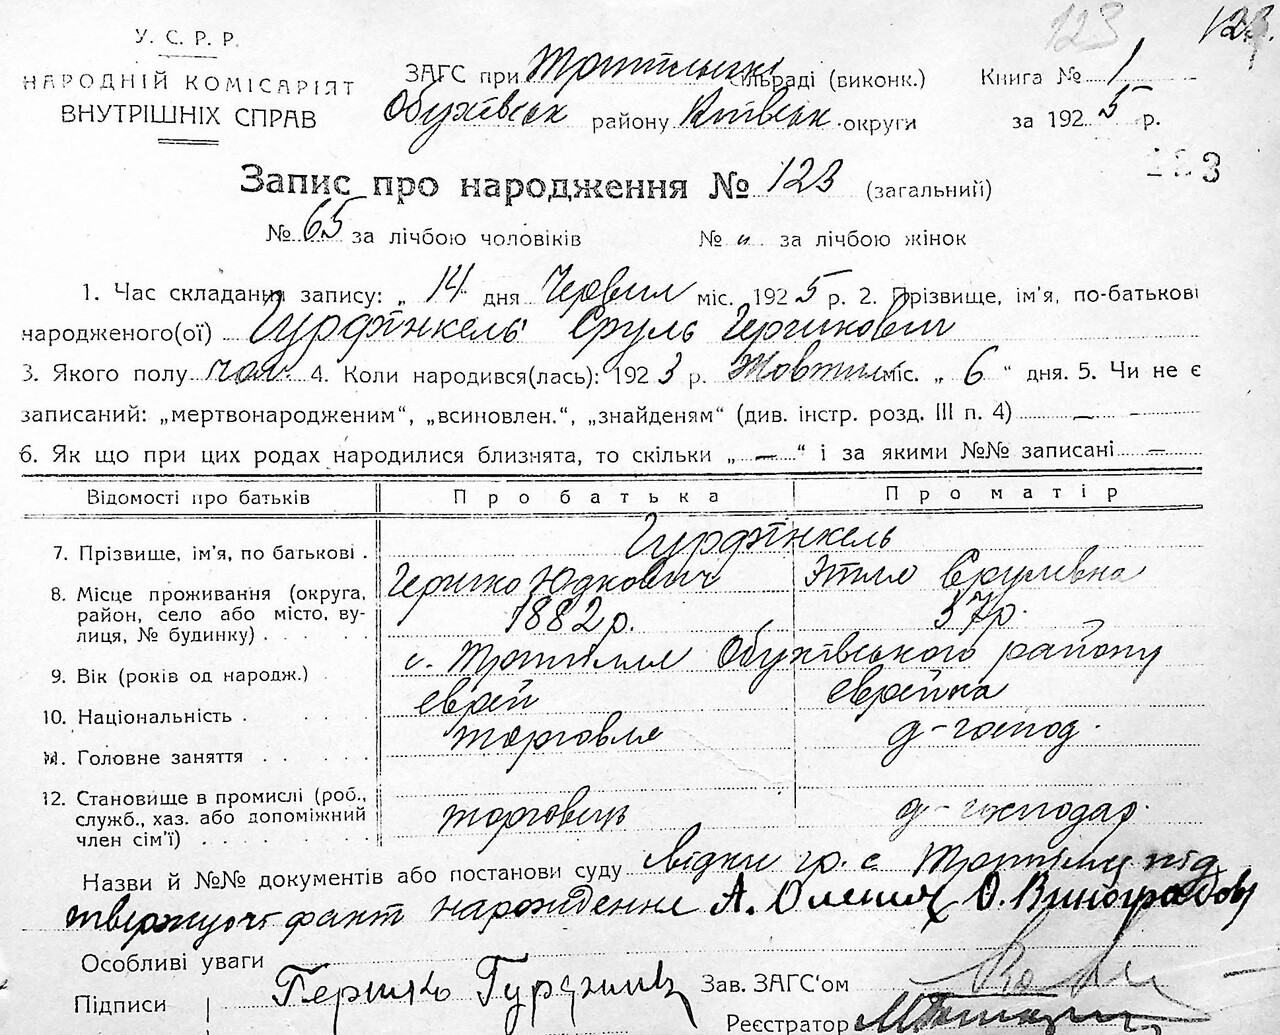 123 123
У. С. Р. Р.
НАРОДНІЙ КОМІСАРІЯТ
ВНУТРІШНІХ СПРАВ
ЗАГС при Трипільськ. сільраді (виконк.) Книга № 1
Обухівськ району Київськ. округи за 1925 р.
Запис про народження № 123 (загальний)
123
№ 65 за лічбою чоловіків № „ за лічбою жінок
1. Час складання запису: „ 14 “ дня Червня міс. 1925 р. 2. Прізвище, ім’я, по-батькові
народженого(ої) Гурфінкель Сруль Гершкович
3. Якого полу чол. 4. Коли народився(лась): 1923 р. Жовтня міс. „ 6 “ дня. 5. Чи не є
записаний: „мертвонародженим“, „всиновлен.“, „знайденям“ (див. інстр. розд. III п. 4) —
6. Як що при цих родах народилися близнята, то скільки „ — “ і за якими №№ записані —
Відомості про батьків Про батька Про матір
7. Прізвище, ім’я, по батькові . Гурфінкель
Гершко Юдкович Этля Срулевна
8. Місце проживання (округа, район, село або місто, вулиця, № будинку) . . . . .
1882 р. 37 р.
с. Трипілля Обухівського району
9. Вік (років од народж.) .
еврей еврейка
10. Національність . . . . .
торговля д-господ.
11. Головне заняття . . . . .
12. Становище в промислі (роб., служб., хаз. або допоміжний член сім’ї) . . . . . .
торговець д-господар.
Назви й №№ документів або постанови суду свідки гр. с. Трипілля під
твержуючі факт народження А. О. Виноградов
Особливі уваги
Підписи Гершко Зав. ЗАГС‘ом
Реєстратор